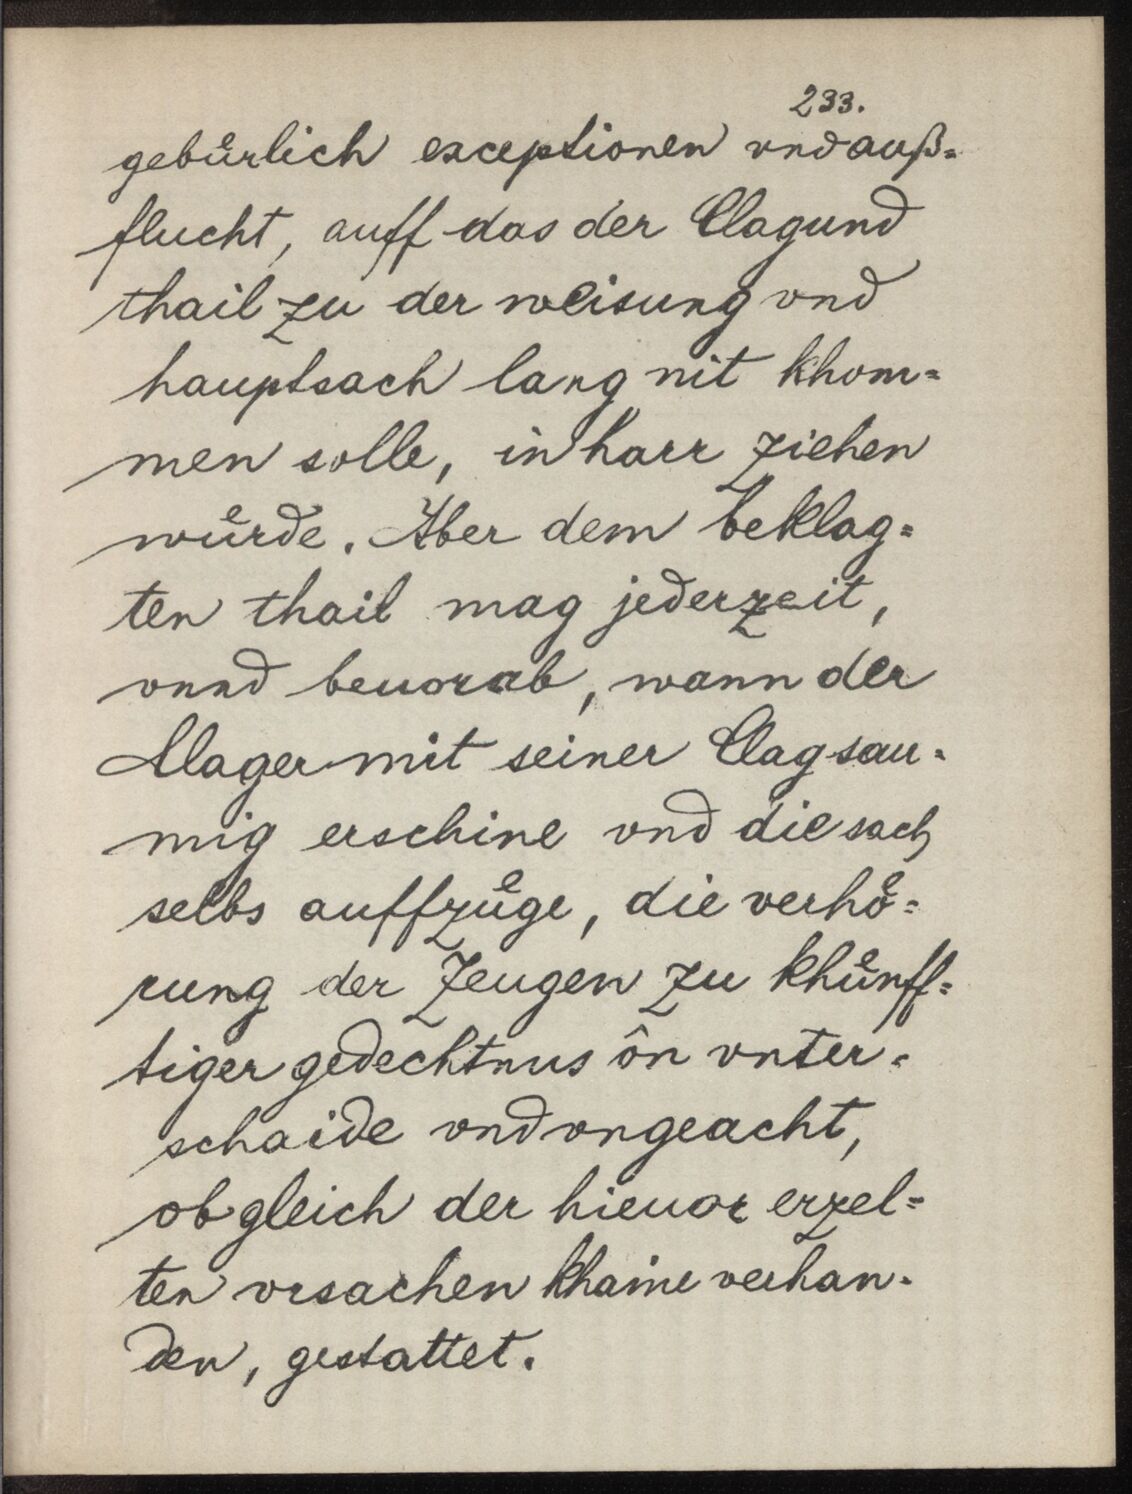 233.
gebůrlich exceptionen vnd auß=
flucht, auff das der Clagund
thail zu der weisung vnd
hauptsach lang nit khom=
men solle, in harr ziehen
wůrde. Aber dem beklag=
ten thail mag jederzeit,
vnnd beuorab, wann der
Clager mit seiner Clag sau=
mig erschine vnd die sach
selbs auffzůge, die verhö=
rung der Zeugen zu khůnff=
tiger gedechtnus ôn vnter=
schaide vnd vngeacht,
ob gleich der hieuor erzel=
ten vrsachen khaine verhan=
den, gestattet.